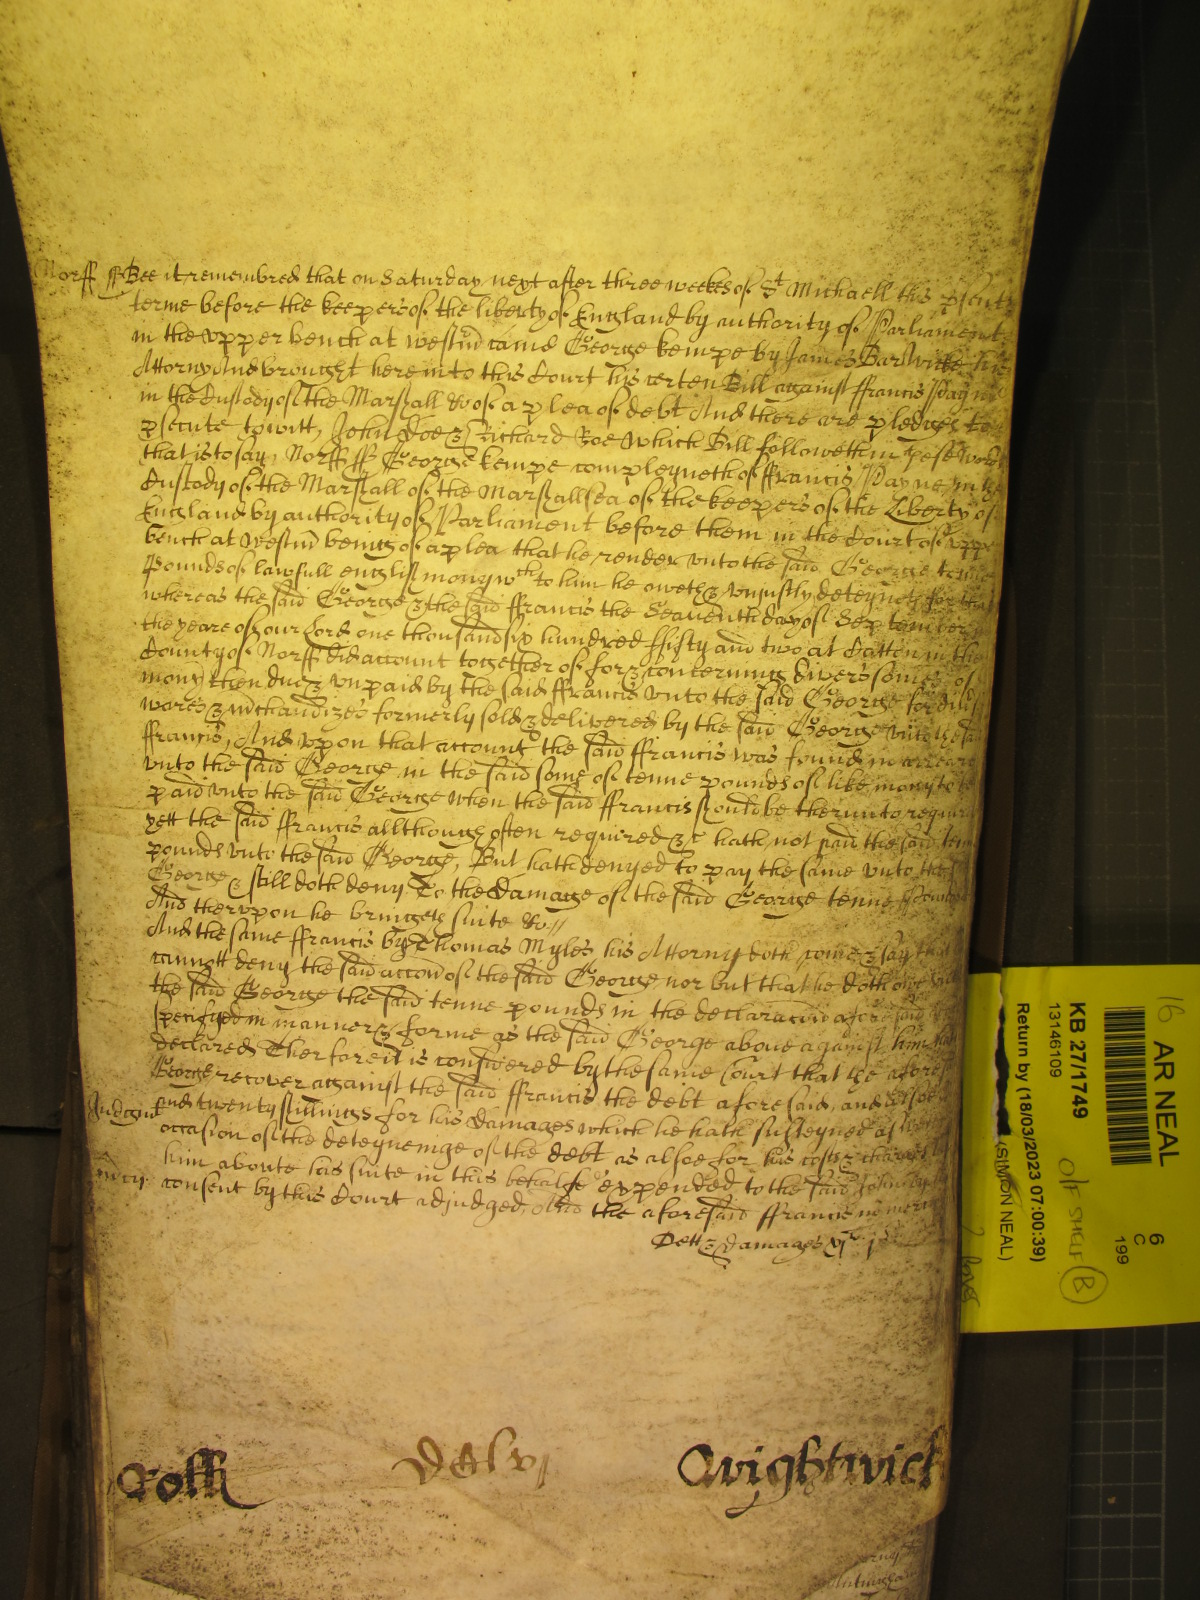 Norff ss Bee it remembred that on Saturday next after three weekes of St Michaell this psent
terme before the keepers of the liberty of England by authority of Parliament
in the vpper bench at westm̄ came George kempe by James Barwicke his
Attorny And brought here into this Court his certen Bill against ffrancis Payne
in the Custody of the Marshall &c of a plea of debt And there are pledges to
psecute to witt, John Doe & Richard Roe Which Bill followeth in these words
that is to say, Norff ss George kempe compleyneth of ffrancis Payne, in the
Custody of the Marshall of the Marshallsea of the keepers of the Liberty of
England by authority of Parliament before them in the Court of vpper
bench at westm̄ being of a plea that he render vnto the said George tenne
Pounds of lawfull english mony wch to him he oweth & vniustly deteyneth for that
whereas the said George & the said ffrancis the Seaventh day of September in
the yeare of our Lord one thousand six hundred ffifty and two at Catton in the
County of Norff did account together of for & concerning divers somes of
mony then due & vnpaid by the said ffrancis vnto the said George for divers
wares & mchandizes formerly sold & delivered by the said George vnto the said
ffrancis, And vpon that account the said ffrancis was found in arreare
vnto the said George in the said some of tenne pounds of like mony to be
paid vnto the said George when the said ffrancis should be therunto required
yett the said ffrancis allthough often required &c hath not paid the said tenne
pounds vnto the said George, But hath denyed to pay the same vnto the said
George & still doth deny To the Damage of the said George tenne Pounds
And thervpon he bringeth suite &c//
And the same ffrancis by Thomas Myles his Attorny doth come & say that
cannott deny the said accōn of the said George nor but that he doth owe vnto
the said George the said tenne pounds in the declaracōn aforesaid
specifyed in manner & forme as the said George aboue against him hath
declared Therfore it is considered by the same Court that the aforesaid
George recover against the said ffrancis the debt aforesaid, and alsoe
Judgmt and twenty shillings for his Damages which he hath susteyned as well
occasion of the deteyneinge of the debt as alsoe for his costs & charges by
him aboute his suite in this behalfe expended to the said
mcy: consent by this Court adjudged, And the aforesaid ffrancis in mercy
Dett & damages xjli
Rolle Dclvj Wightwick
16 AR NEAL
6
C
199
KB 27/1749
13146109
Return by (18/03/2023 07:00:39)
(SIMON NEAL)
O/F SHELF B